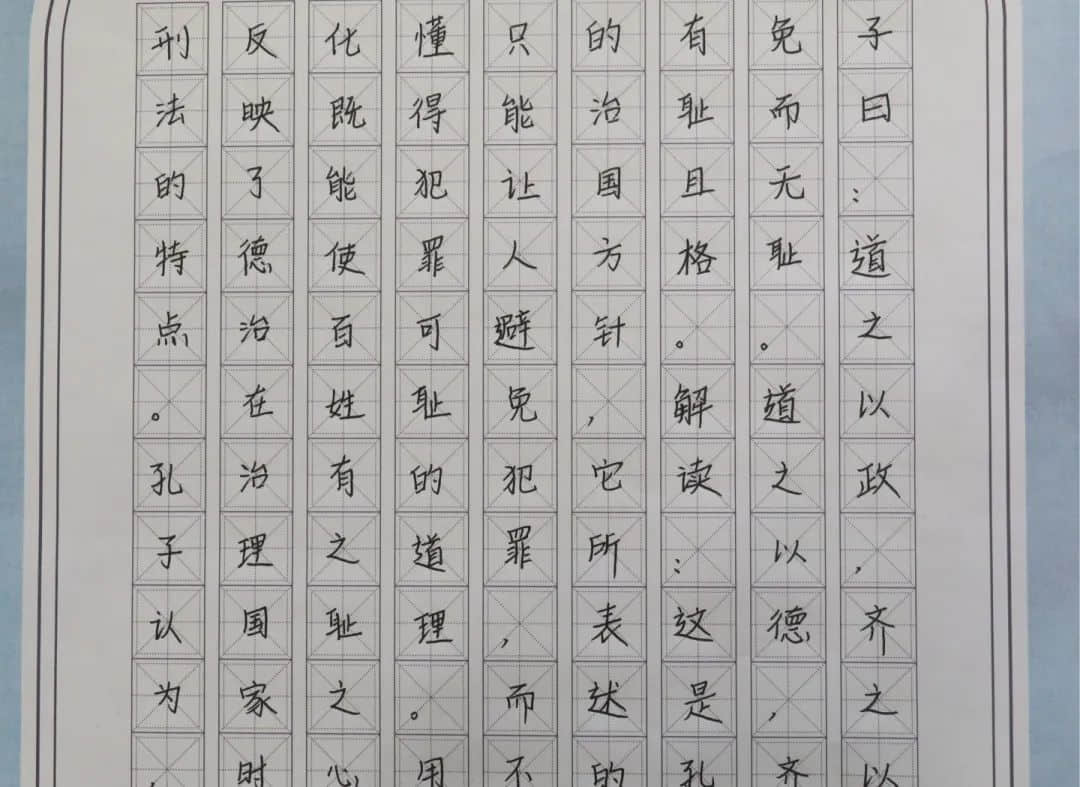 子曰：道之以政，齐之以
免而无耻。道之以德，齐
有耻且格。解读：这是孔
的治国方针，它所表述的
只能让人避免犯罪，而不
懂得犯罪可耻的道理。用
化既能使百姓有之耻之心
反映了德治在治理国家时
刑法的特点。孔子认为，